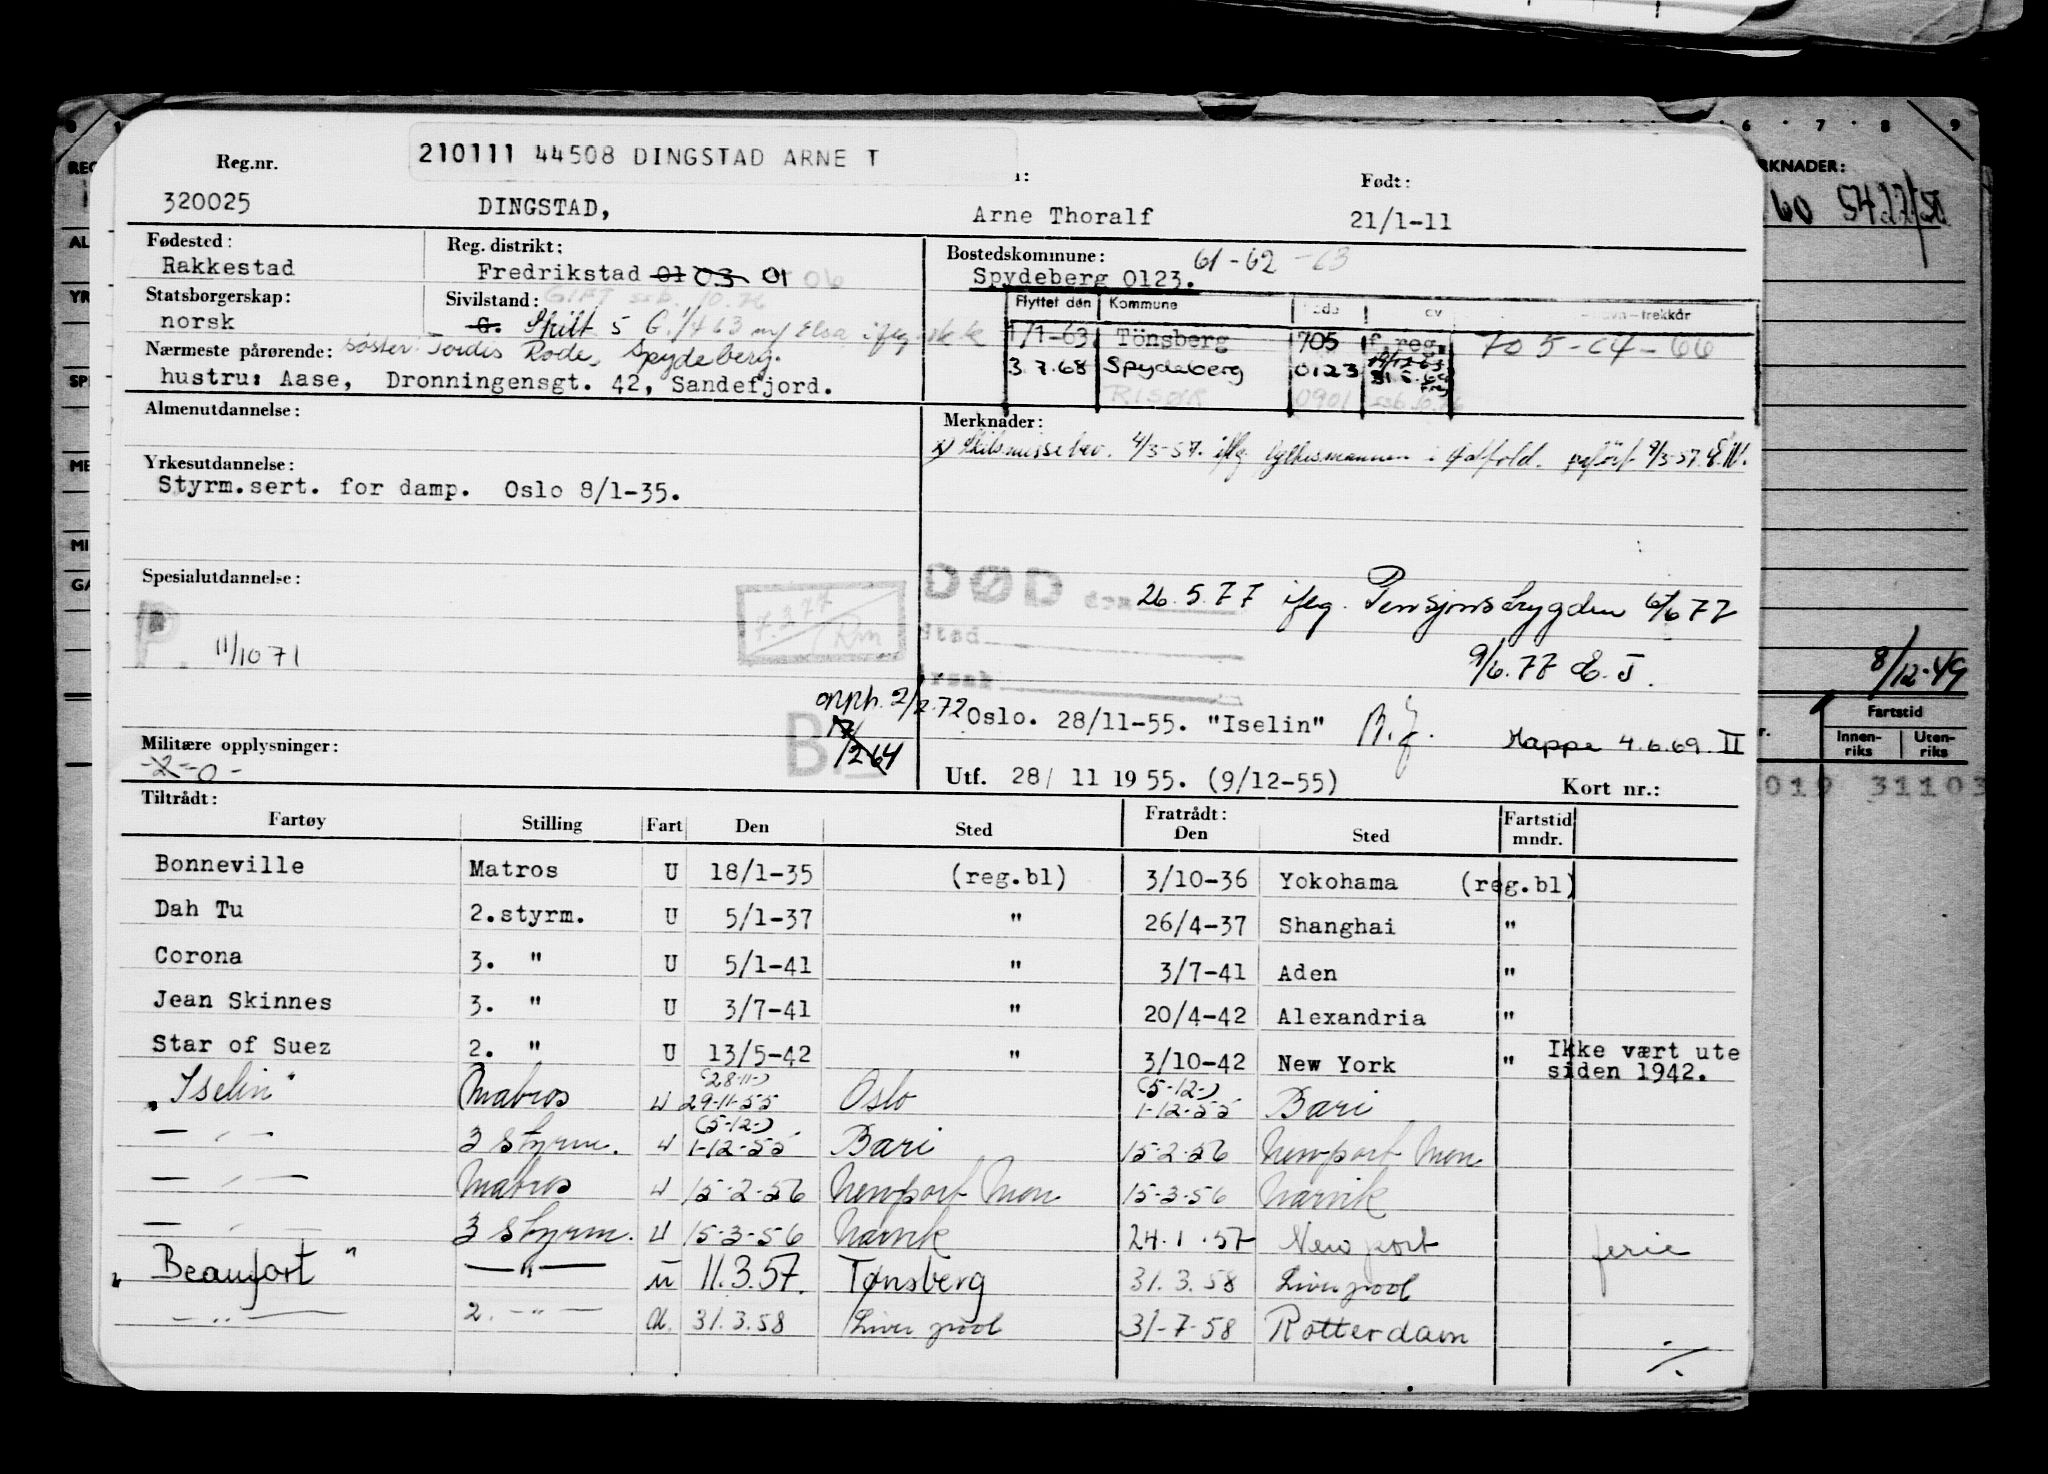 210111 44508 DINGSTAD ARNE T
Reg.nr. Født:
320025 DINGSTAD, Arne Thoralf 21/1-11
Fødested: Reg. distrikt: Bostedskommune: 61-62-63
Rakkestad Fredrikstad 01 03 01 06 Spydeberg 0123.
Statsborgerskap: Sivilstand: Flyttet den Kommune
norsk G. Skilt 5 G. 1/4 63 m/ Elsa 1/1-63 Tönsberg 705 f.reg. 705-64-66
Nærmeste pårørende: søster: Tordis Rode, Spydeberg. 3.7.68 Spydeberg 0123
hustru: Aase, Dronningensgt. 42, Sandefjord. RISØR 0901
Almenutdannelse: Merknader:
x) Skilsmissebev. 4/3-57. iflg. fylkesmannen i Østfold. påført 9/3-57. E.W.
Yrkesutdannelse:
Styrm.sert. for damp. Oslo 8/1-35.
Spesialutdannelse: DØD den 26.5.77 iflg. Pensjonstrygden 6/6 77
P. 11/10 71 Sted
9/6.77 E.J.
årsak
opph. 2/2.72 Oslo. 28/11-55. "Iselin"
B. Mappe 4.6.69. II
Militære opplysninger:
-2-0- Utf. 28/ 11 1955. (9/12-55) Kort nr.:
Tiltrådt: Fratrådt:
Fartøy Stilling Fart Den Sted Den Sted Fartstid mndr.
Bonneville Matros U 18/1-35 (reg.bl) 3/10-36 Yokohama (reg.bl)
Dah Tu 2.styrm. U 5/1-37 " 26/4-37 Shanghai "
Corona 3. " U 5/1-41 " 3/7-41 Aden "
Jean Skinnes 3. " U 3/7-41 " 20/4-42 Alexandria "
Star of Suez 2. " U 13/5-42 " 3/10-42 New York " Ikke vært ute siden 1942.
(28-11-) (5-12-)
"Iselin" Matros U 29-11-55 Oslo 1-12-55 Bari
(5-12-)
— " — 3 styrm. U 1-12-55 Bari 15-2-56 Newport Mon
— " — Matros U 15-2-56 Newport Mon 15-3-56 Narvik
— " — 3 styrm. U 15-3-56 Narvik 24.1.57 Newport ferie
"Beaufort" — " — U 11.3.57. Tønsberg 31.3.58 Liverpool
— " — 2. — " — U. 31.3.58 Liverpool 31-7-58 Rotterdam
./.
RKNADER:
60 5427/50
8/12-49
Fartstid
Innen-riks Uten-riks
019 31103